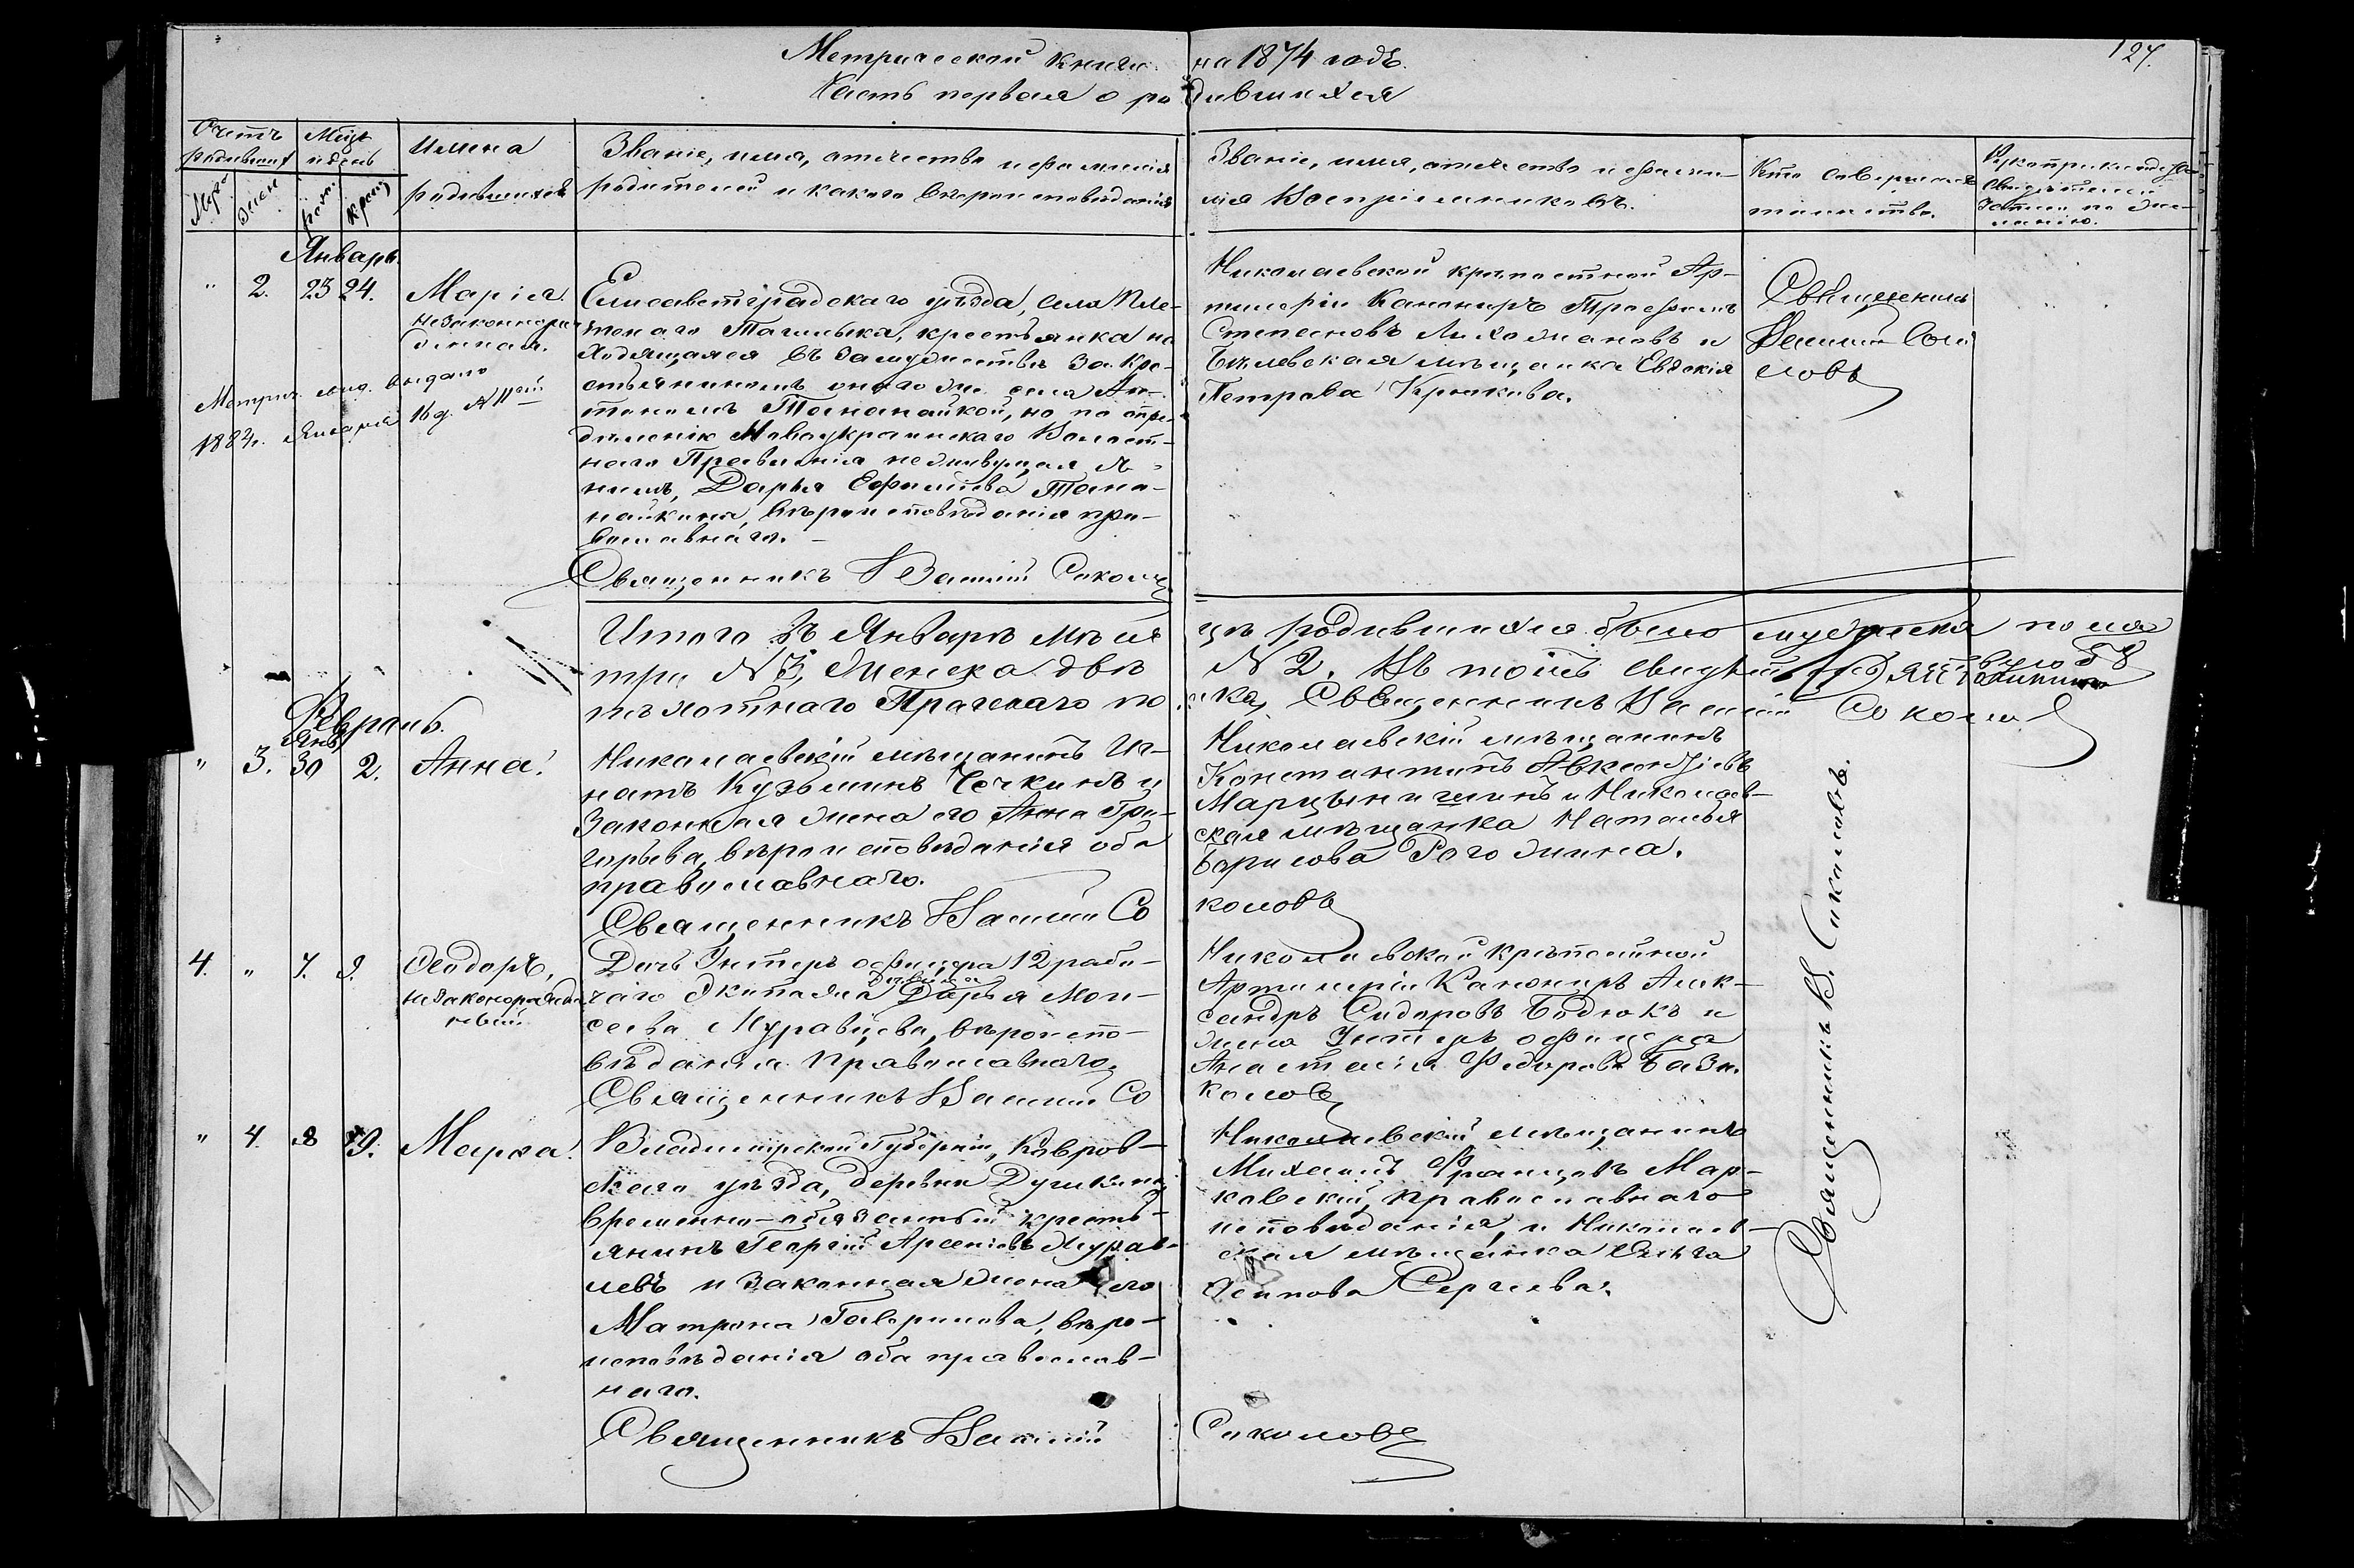 Метрической книги на 1874 годъ.
127.
Часть первая о родившихся
Счетъ родивших
Мѣсяцъ и день
Имена родившихся
Званіе, имя, отчество и фамилія
родителей и какого вѣроисповѣданія
Званіе, имя, отчество и фами-
лія Воспріемниковъ.
Кто совершалъ
таинство.
Рукоприкладство
свидѣтелей
записи по же-
ланію.
Муж.
Жен.
рож.
крещ.
Январь.
" 2. 23 24.
Марія.
незаконнорож
денная.
Метрич. свид. выдано
1883г. Января 16 д. №
Елисаветградскаго уѣзда, села Пле-
тенаго Ташлыка, крестьянка на
ходящаяся въ замужествѣ за кре-
стьяниномъ онаго же села Ан-
тономъ Тананайкой, но по опре-
дѣленію Новоукраинскаго Волост-
наго Правленія неживущая съ
нимъ, Дарья Ефимиева Тана-
найкина, вѣроисповѣданія пра-
вославнаго.
Священникъ Василій Соколовъ
Николаевской крѣпостной Ар-
тилеріи Канониръ Трофимъ
Степановъ Лихомановъ и
Бѣлевская мѣщанка Евдокія
Петрова Крюкова.
Священникъ
Василій Соко
ловъ
Итого въ Январѣ мѣся
цѣ родившихся было мужеска пола
три № 3, женска двѣ
№ 2. Въ томъ свидѣт
пѣхотнаго Прагскаго по
лка, Священникъ Василій Соколов
Февраль.
Янв.
" 3. 30 2.
Анна.
Николаевскій мѣщанинъ Иг-
натъ Кузьминъ Чечкинъ и
законная жена его Анна Гри-
горьева, вѣроисповѣданія оба
православнаго.
Священникъ Василій Со
коловъ
Николаевскій мѣщанинъ
Константинъ
Марцынишинъ и Николаев-
ская мѣщанка Наталья
Борисова Рогожина.
Священникъ В. Соколовъ.
4. " 7. 9.
Ѳеодоръ,
незаконорожден
ный
Дочь Унтеръ офицера 12 рабо-
чаго Экипажа дѣвица Дарья Мои-
сеева Муравцева, вѣроиспо-
вѣданія Православнаго.
Священникъ Василій Со
коловъ
Николаевской крѣпостной
Артилеріи Канониръ Алек-
сандръ Сидоровъ Бодюкъ и
жена Унтеръ офицера
Анастасія Федорова
" 4. 8 9.
Марѳа.
Владимірской Губерніи, Ковров-
скаго уѣзда, деревни Душкина,
временно-обязанный кресть-
янинъ Георгій Арсеніевъ Журав-
левъ и законная жена его
Матрона Гаврилова, вѣро-
исповѣданія оба православ-
наго.
Священникъ Василій
Соколовъ
Николаевскій мѣщанинъ
Михаилъ Францовъ Мар-
ковскій, православнаго
исповѣданія, и Николаев-
ская мѣщанка Ольга
Осипова Сергѣева.